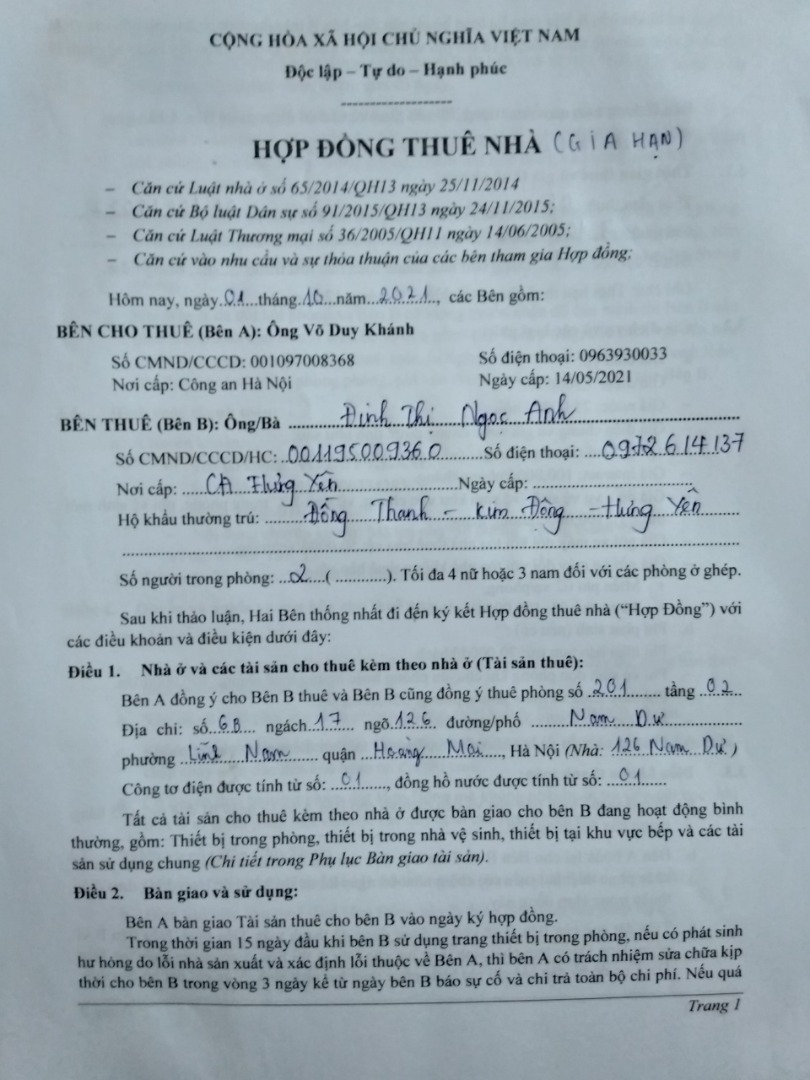 CỘNG HÒA XÃ HỘI CHỦ NGHĨA VIỆT NAM
Độc lập – Tự do – Hạnh phúc
HỢP ĐỒNG THUÊ NHÀ (GIA HẠN)
– Căn cứ Luật nhà ở số 65/2014/QH13 ngày 25/11/2014
– Căn cứ Bộ luật Dân sự số 91/2015/QH13 ngày 24/11/2015;
– Căn cứ Luật Thương mại số 36/2005/QH11 ngày 14/06/2005;
– Căn cứ vào nhu cầu và sự thỏa thuận của các bên tham gia Hợp đồng;
Hôm nay, ngày 01 tháng 10 năm 2021, các Bên gồm:
BÊN CHO THUÊ (Bên A): Ông Võ Duy Khánh
Số CMND/CCCD: 001097008368 Số điện thoại: 0963930033
Nơi cấp: Công an Hà Nội Ngày cấp: 14/05/2021
BÊN THUÊ (Bên B): Ông/Bà Đinh Thị Ngọc Anh
Số CMND/CCCD/HC: 001195009360 Số điện thoại: 0972614137
Nơi cấp: CA Hưng Yên Ngày cấp:
Hộ khẩu thường trú: Đồng Thanh - Kim Động - Hưng Yên
Số người trong phòng: 2 ( ............ ). Tối đa 4 nữ hoặc 3 nam đối với các phòng ở ghép.
Sau khi thảo luận, Hai Bên thống nhất đi đến ký kết Hợp đồng thuê nhà (“Hợp Đồng”) với
các điều khoản và điều kiện dưới đây:
Điều 1. Nhà ở và các tài sản cho thuê kèm theo nhà ở (Tài sản thuê):
Bên A đồng ý cho Bên B thuê và Bên B cũng đồng ý thuê phòng số 201 tầng 02
Địa chỉ: số 6B ngách 17 ngõ 126 đường/phố Nam Dư
phường Lĩnh Nam quận Hoàng Mai, Hà Nội (Nhà: 126 Nam Dư)
Công tơ điện được tính từ số: 01, đồng hồ nước được tính từ số: 01
Tất cả tài sản cho thuê kèm theo nhà ở được bàn giao cho bên B đang hoạt động bình
thường, gồm: Thiết bị trong phòng, thiết bị trong nhà vệ sinh, thiết bị tại khu vực bếp và các tài
sản sử dụng chung (Chi tiết trong Phụ lục Bàn giao tài sản).
Điều 2. Bàn giao và sử dụng:
Bên A bàn giao Tài sản thuê cho bên B vào ngày ký hợp đồng.
Trong thời gian 15 ngày đầu khi bên B sử dụng trang thiết bị trong phòng, nếu có phát sinh
hư hỏng do lỗi nhà sản xuất và xác định lỗi thuộc về Bên A, thì bên A có trách nhiệm sửa chữa kịp
thời cho bên B trong vòng 3 ngày kể từ ngày bên B báo sự cố và chi trả toàn bộ chi phí. Nếu quá
Trang 1